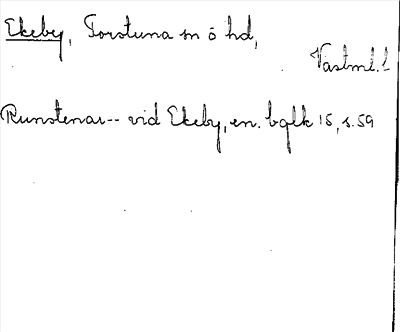 Ekeby, Torstuna sn o hd,
Västml. l
Runstenar-- vid Ekeby, en. bglk 15, s. 59